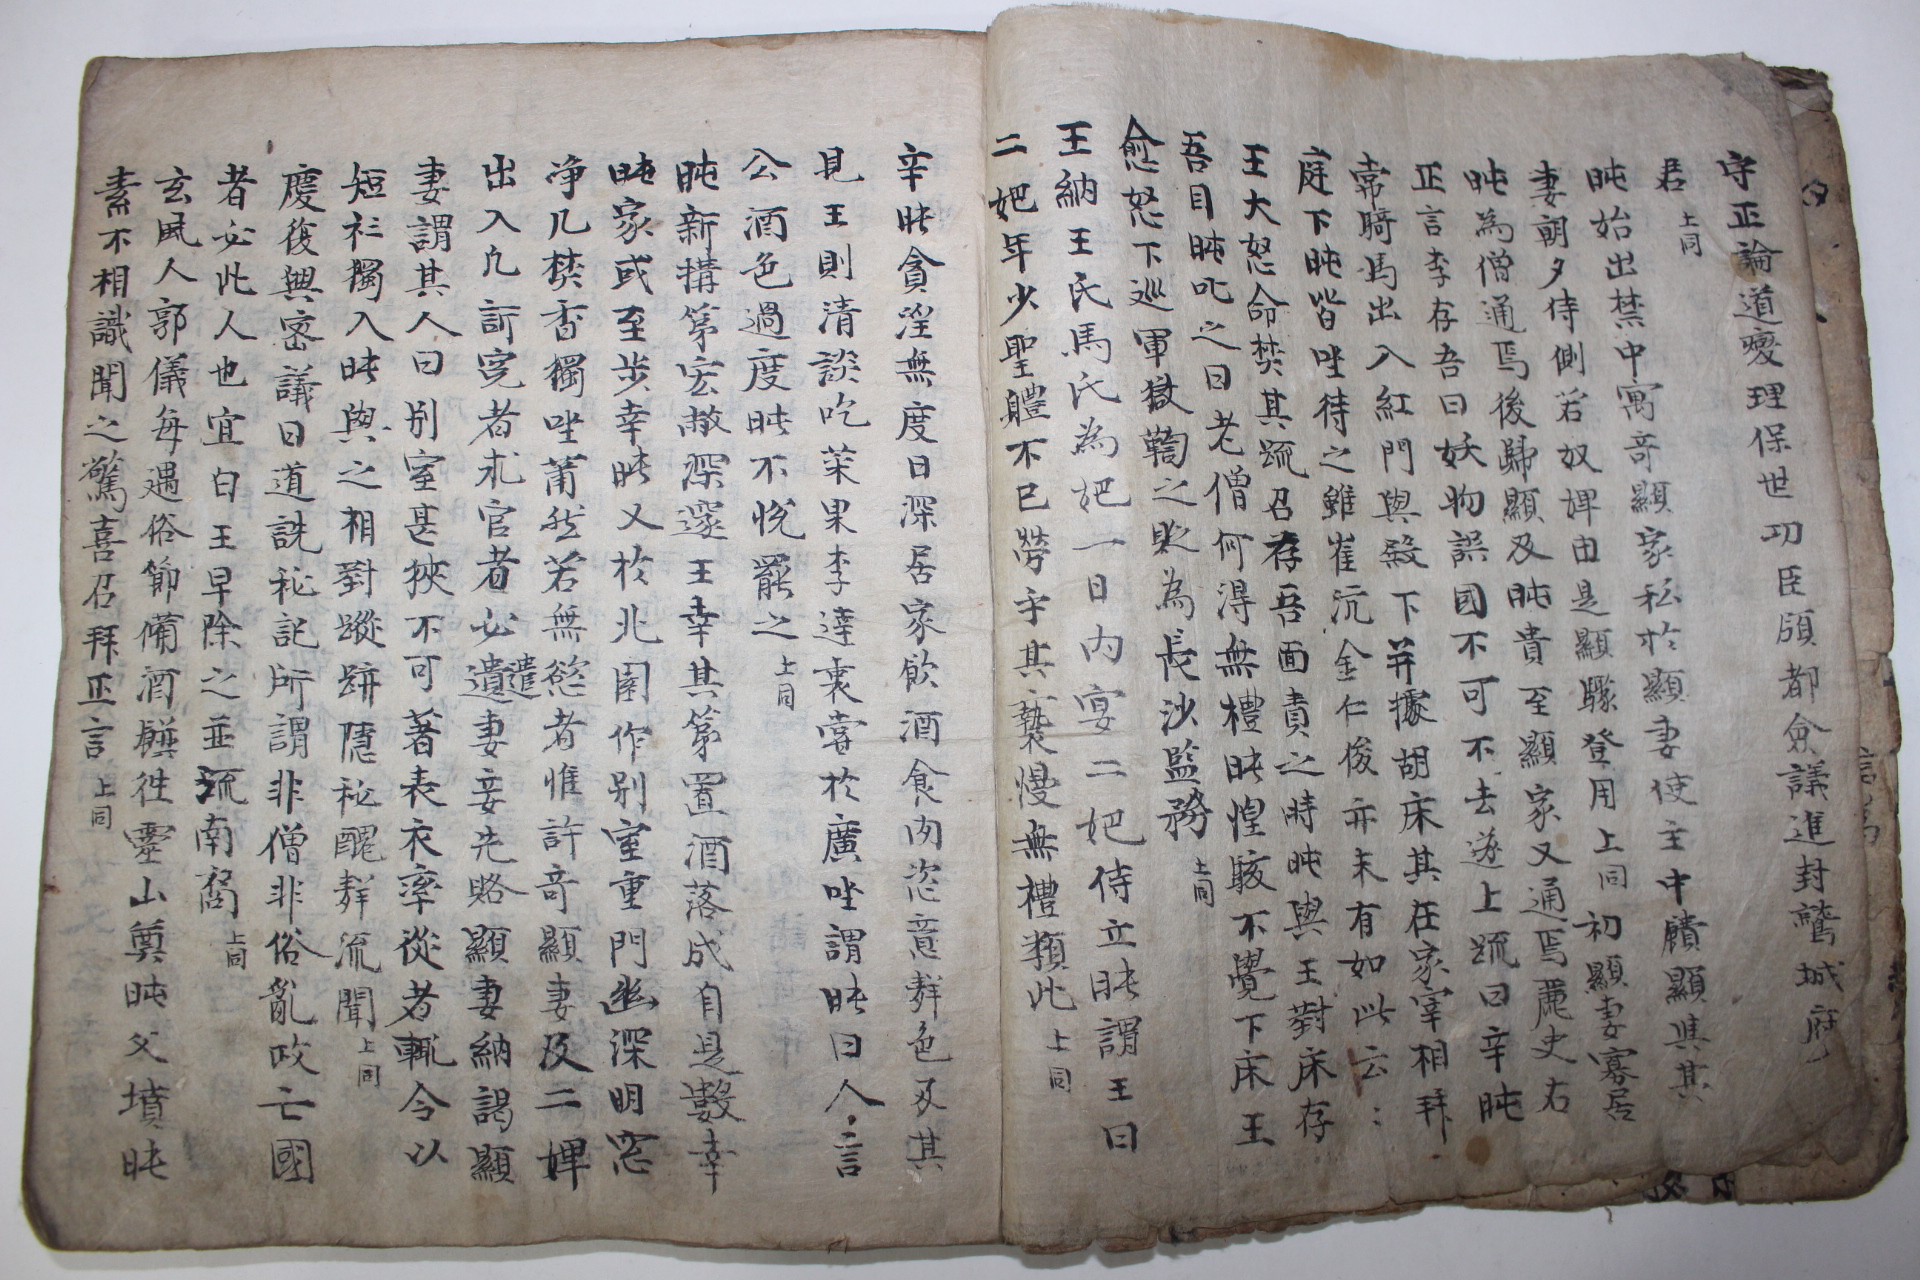 守正論道燮理保世功臣領都僉議進封鷲城府
君 上同
旽始出禁中寓竒顯家私於顯妻使主中饋顯與其
妻朝夕侍側若奴婢由是顯驟登用上同 初顯妻寡居
旽為僧通焉後歸顯及旽貴至顯家又通焉麗史右
正言李存吾曰妖物誤國不可不去遂上疏曰辛旽
常騎馬出入紅門與殿下并據胡床其在家宰相拜
庭下旽皆坐待之雖崔沆金仁俊亦未有如此云〻
王大怒命焚其疏召存吾面責之時旽與王對床存
吾目旽叱之曰老僧何得無禮旽惶駭不覺下床王
愈怒下巡軍獄鞫之貶為長沙監務 上同
王納王氏馬氏為妃一日內宴二妃侍立旽謂王曰
二妃年少聖軆不已勞乎其褻慢無禮類此 上同
辛旽貪淫無度日深居家飲酒食肉恣意聲色及其
見王則清談吃菜果李達衷嘗於廣坐謂旽曰人〻言
公酒色過度旽不悅罷之 上同
旽新搆第宏敞深邃王幸其第置酒落成自是數幸
旽家或至步幸旽又於北園作別室重門幽深明窓
净几焚香獨坐蕭然若無慾者惟許竒顯妻及二婢
出入凡訴寃者求官者必遺遣妻妾先賂顯妻納謁顯
妻謂其人曰別室甚挾不可著表衣率從者輒令以
短衫獨入旽與之相對蹤跡隱秘醜聲流聞 上同
慶復興密議曰道詵秘記所謂非僧非俗亂政亡國
者必此人也宜白王早除之並流南裔 上同
玄風人郭儀每遇俗節備酒饌徃靈山奠旽父墳旽
素不相識聞之驚喜召拜正言 上同